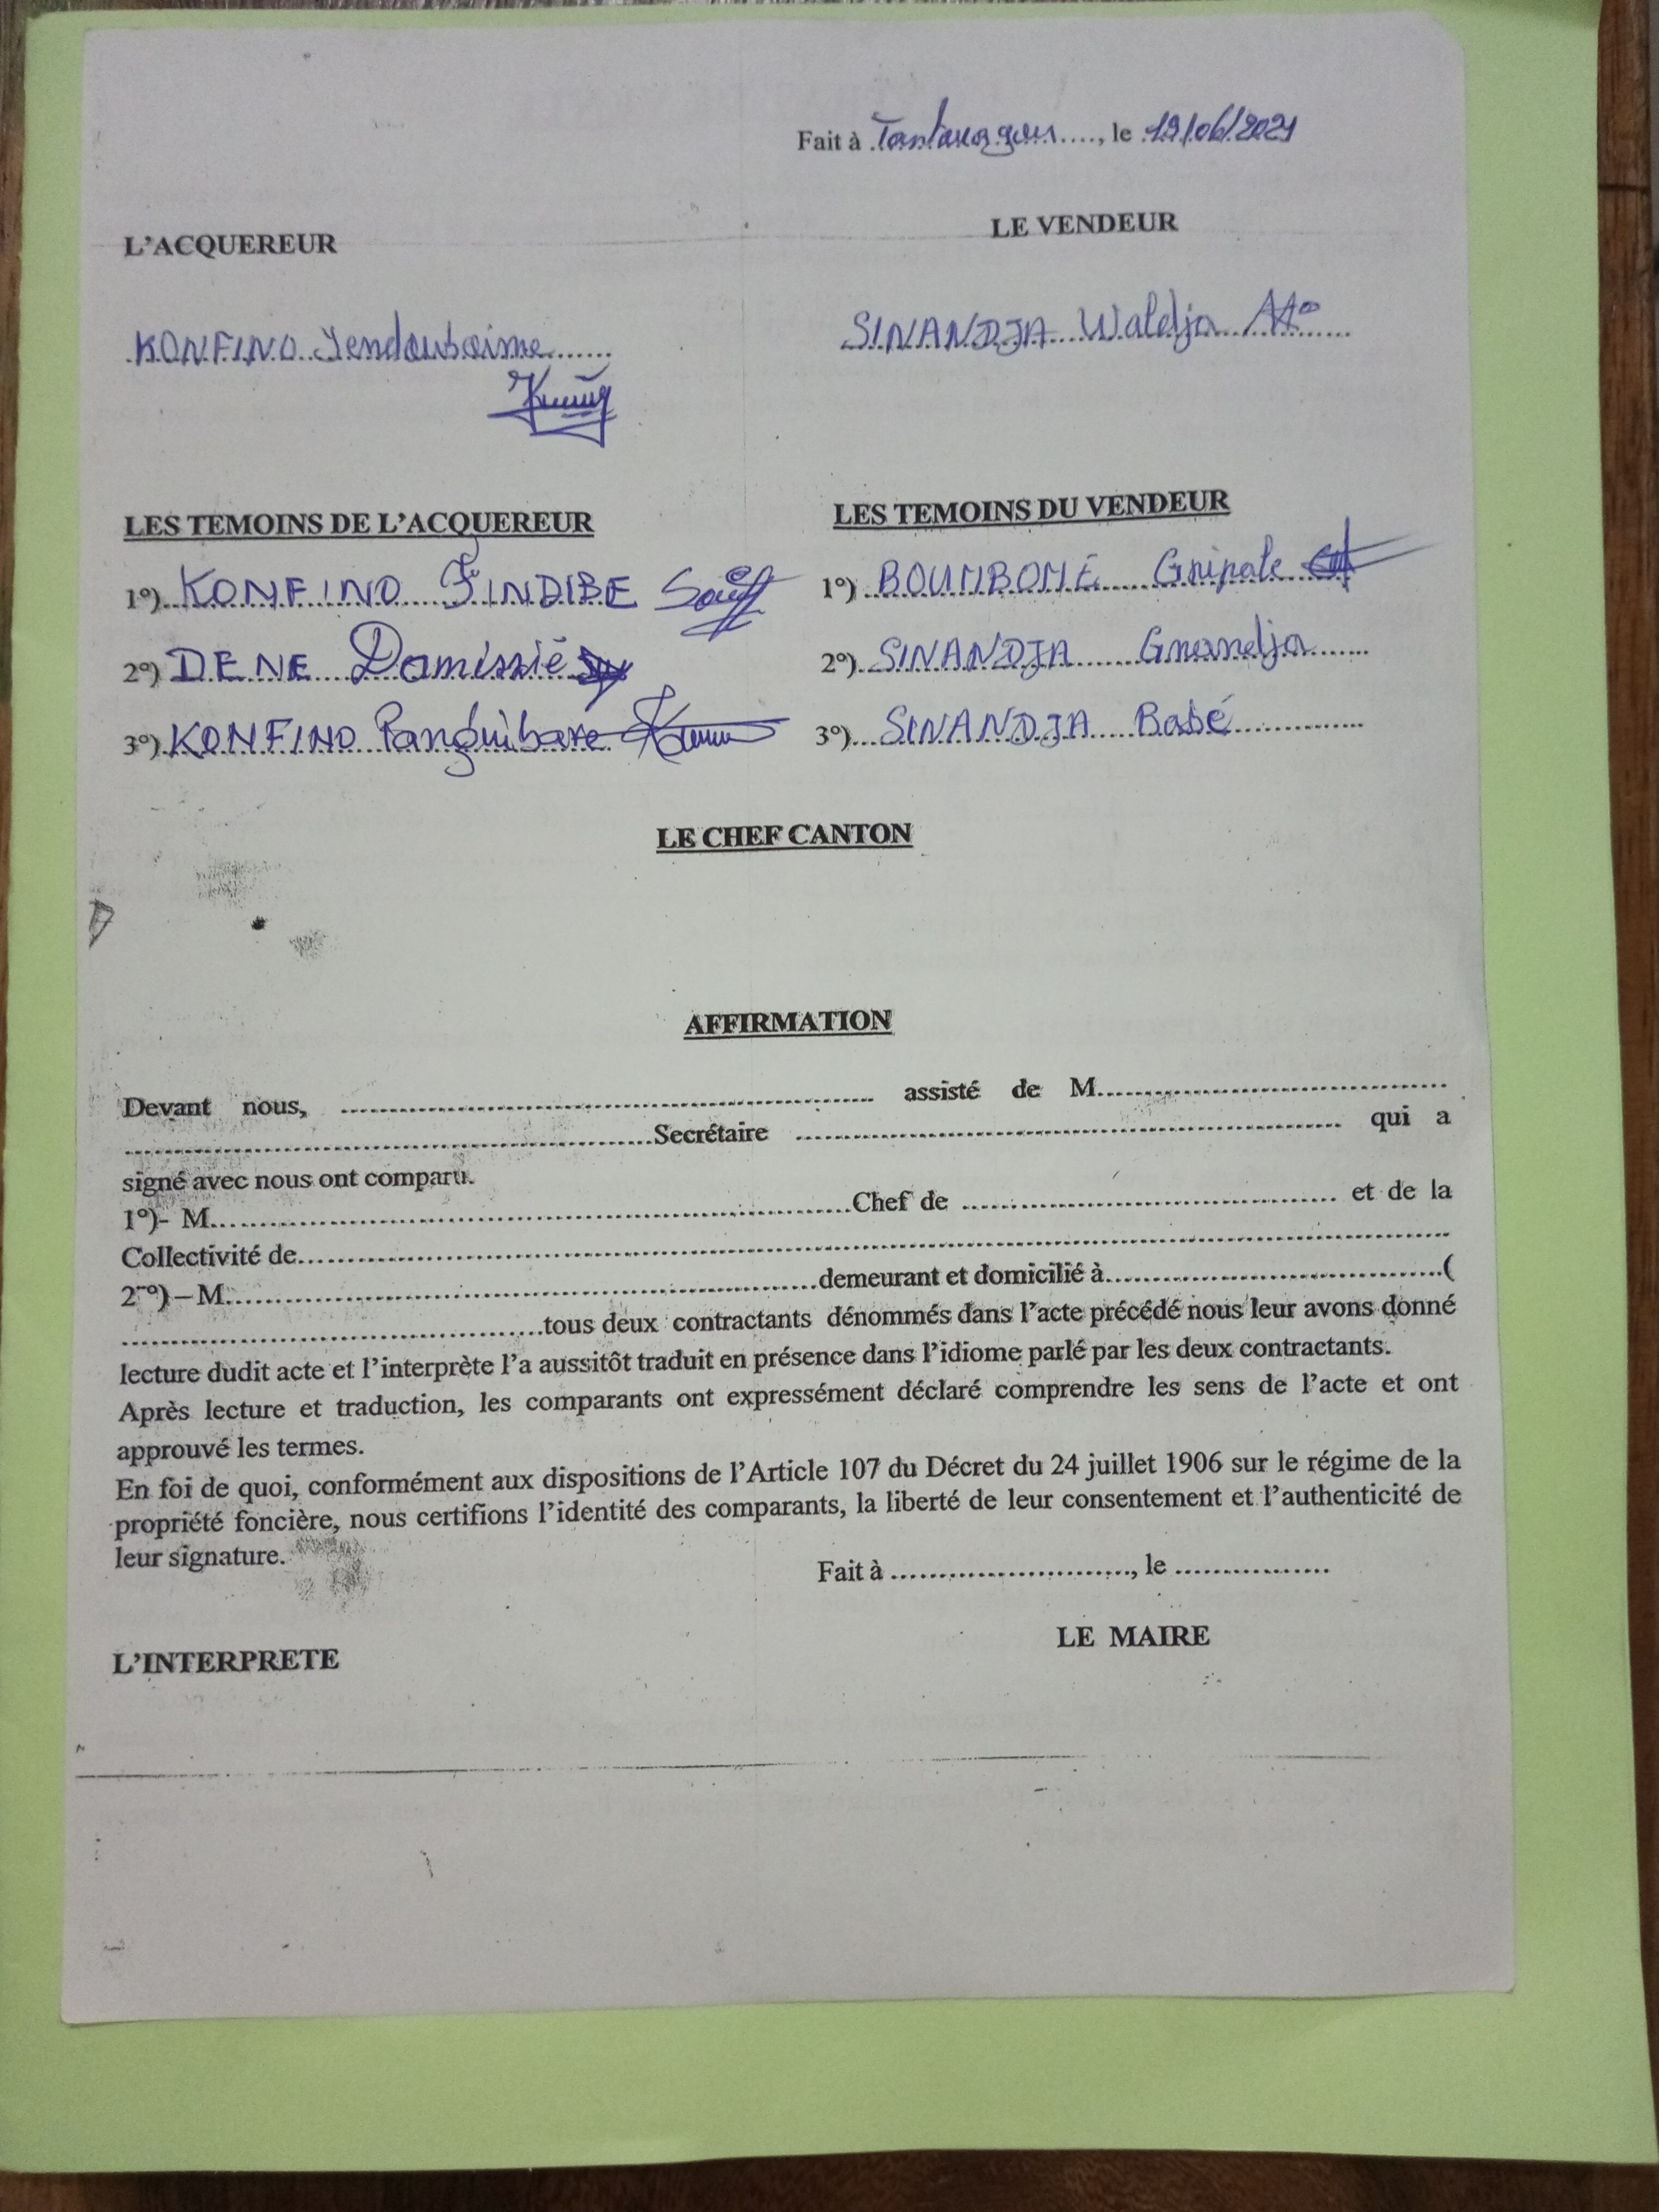 Fait à Tantauagou...., le 19/06/2021
L'ACQUEREUR
LE VENDEUR
KONFINO Yendoubaime
SINANDJA Waldja
LES TEMOINS DE L'ACQUEREUR
LES TEMOINS DU VENDEUR
1°) KONFINO FINDIBE
1°) BOUMBOME Gnipale
2°) DENE Damissié
2°) SINANDJA Gnandja
3°) KONFINO Panguibare
3°) SINANDJA Babé
LE CHEF CANTON
AFFIRMATION
Devant nous, .......... assisté de M..........
..........Secrétaire .......... qui a
signé avec nous ont comparu.
1°)- M..........Chef de .......... et de la
Collectivité de..........
2°) – M..........demeurant et domicilié à..........(
..........tous deux contractants dénommés dans l'acte précédé nous leur avons donné
lecture dudit acte et l'interprète l'a aussitôt traduit en présence dans l'idiome parlé par les deux contractants.
Après lecture et traduction, les comparants ont expressément déclaré comprendre les sens de l'acte et ont
approuvé les termes.
En foi de quoi, conformément aux dispositions de l'Article 107 du Décret du 24 juillet 1906 sur le régime de la
propriété foncière, nous certifions l'identité des comparants, la liberté de leur consentement et l'authenticité de
leur signature.
Fait à .........., le ..........
LE MAIRE
L'INTERPRETE